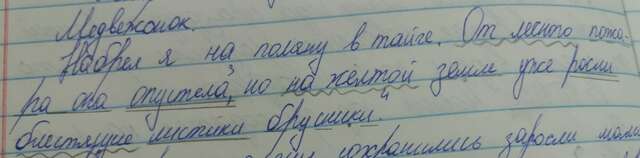 Медвежонок.
Набрел я на поляну в тайге. От лесного пожа-
ра она опустела, но на желтой земле уже росли
блестящие листики брусники.
сохранились заросли